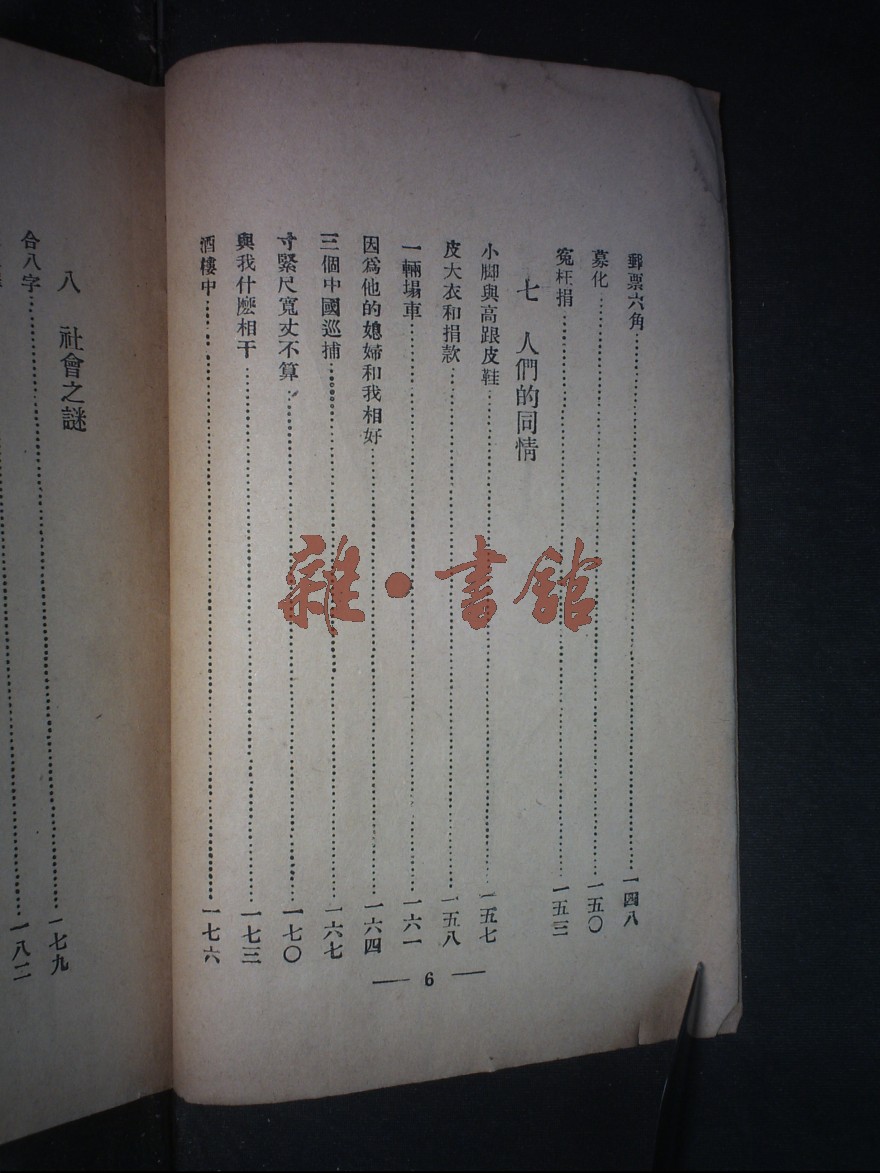 郵票六角……一四八
募化……一五〇
寃枉捐……一五三
七 人們的同情
小脚與高跟皮鞋……一五七
皮大衣和捐款……一五八
一輛塲車……一六一
因爲他的媳婦和我相好……一六四
三個中國巡捕……一六七
寸緊尺寬丈不算……一七〇
與我什麽相干……一七三
酒樓中……一七六
— 6 —
八 社會之謎
合八字……一七九
一八二
雜·書館